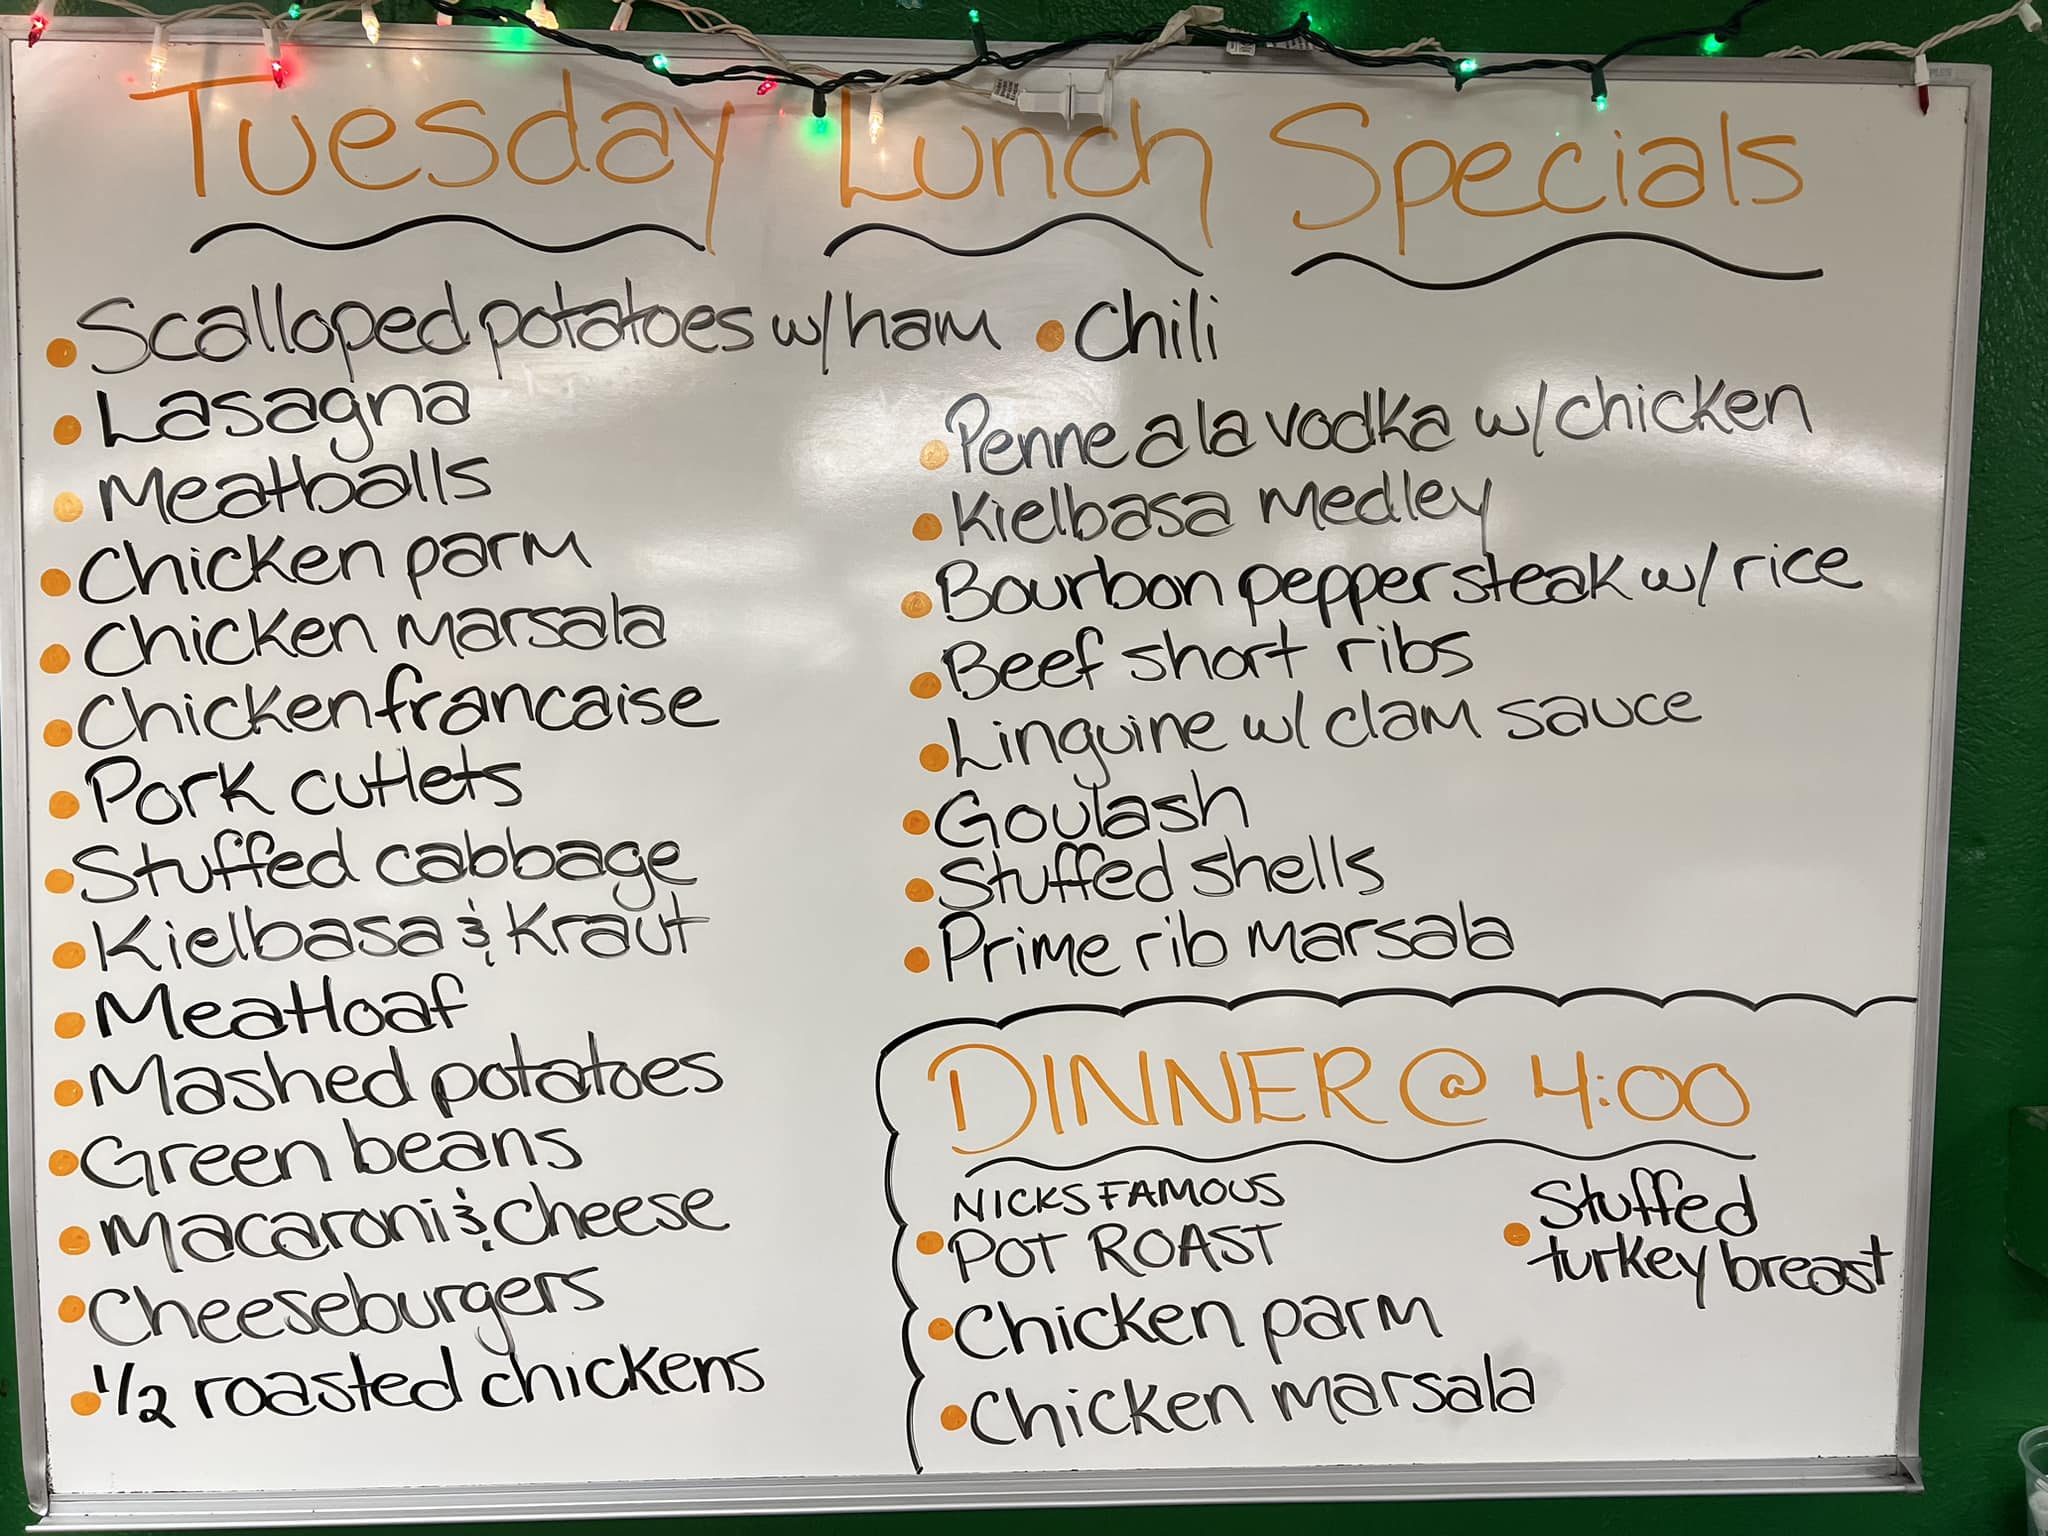 Tuesday Lunch Specials
• Scalloped potatoes w/ham
• Lasagna
• Meatballs
• Chicken parm
• Chicken marsala
• Chicken francaise
• Pork cutlets
• Stuffed cabbage
• Kielbasa & Kraut
• Meatloaf
• Mashed potatoes
• Green beans
• Macaroni & Cheese
• Cheeseburgers
• 1/2 roasted chickens
• Chili
• Penne a la vodka w/chicken
• Kielbasa medley
• Bourbon pepper steak w/ rice
• Beef short ribs
• Linguine w/ clam sauce
• Goulash
• Stuffed shells
• Prime rib marsala
DINNER @ 4:00
NICKS FAMOUS
• POT ROAST
• Chicken parm
• Chicken marsala
• Stuffed
turkey breast